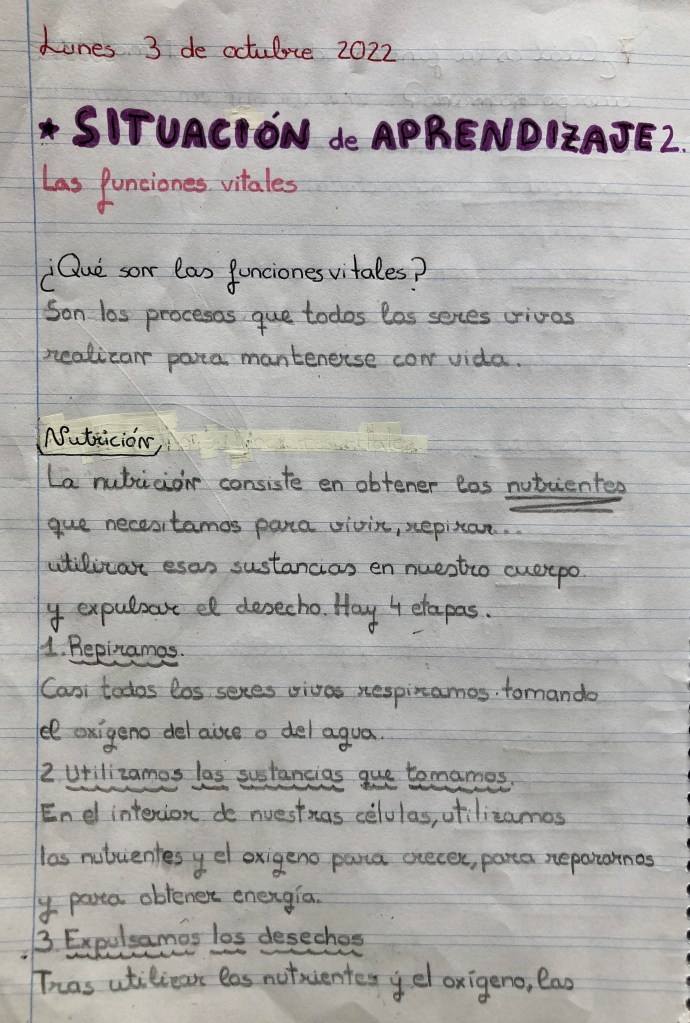 Lunes 3 de octubre 2022
* SITUACIÓN de APRENDIZAJE 2.
Las funciones vitales
¿Qué son las funciones vitales?
Son los procesos que todos los seres vivos
realizan para mantenerse con vida.
Nutrición
La nutrición consiste en obtener los nutrientes
que necesitamos para vivir, repirar...
utilizar esas sustancias en nuestro cuerpo
y expulsar el desecho. Hay 4 etapas.
1. Repiramos.
Casi todos los seres vivos respiramos tomando
el oxígeno del aire o del agua.
2. Utilizamos las sustancias que tomamos.
En el interior de nuestras células, utilizamos
los nutrientes y el oxigeno para crecer, para repararnos
y para obtener energía.
3. Expulsamos los desechos
Tras utilizar los nutrientes y el oxígeno, las